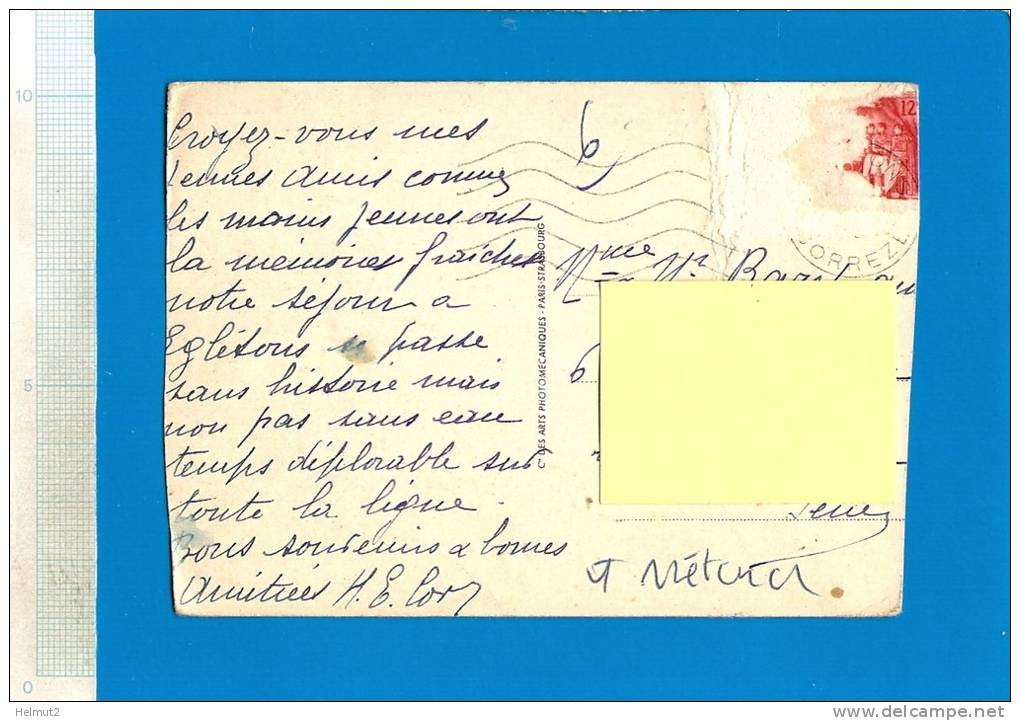 10
5
0
Croyez-vous mes
Jeunes Amis comme
les mains jeunes ont
la mémoires fraiches
notre séjour a
Eglétons se passe
sans histoire mais
non pas sans eau
temps déplorable sur
toute la ligne.
Bons souvenirs & bonnes
Amitiées H. E.
6
12
CORREZE
Cie DES ARTS PHOTOMECANIQUES - PARIS-STRASBOURG
Mme Mr
6
Helmut2
www.delcampe.net